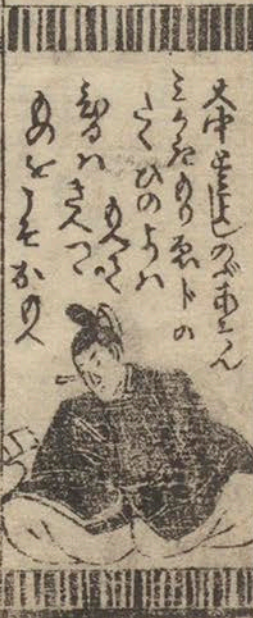 大中臣よしのぶあそん
ミかきもりゑじの
たくひのよハ
もえて
ひるハきえつゝ
ものをこそおもへ